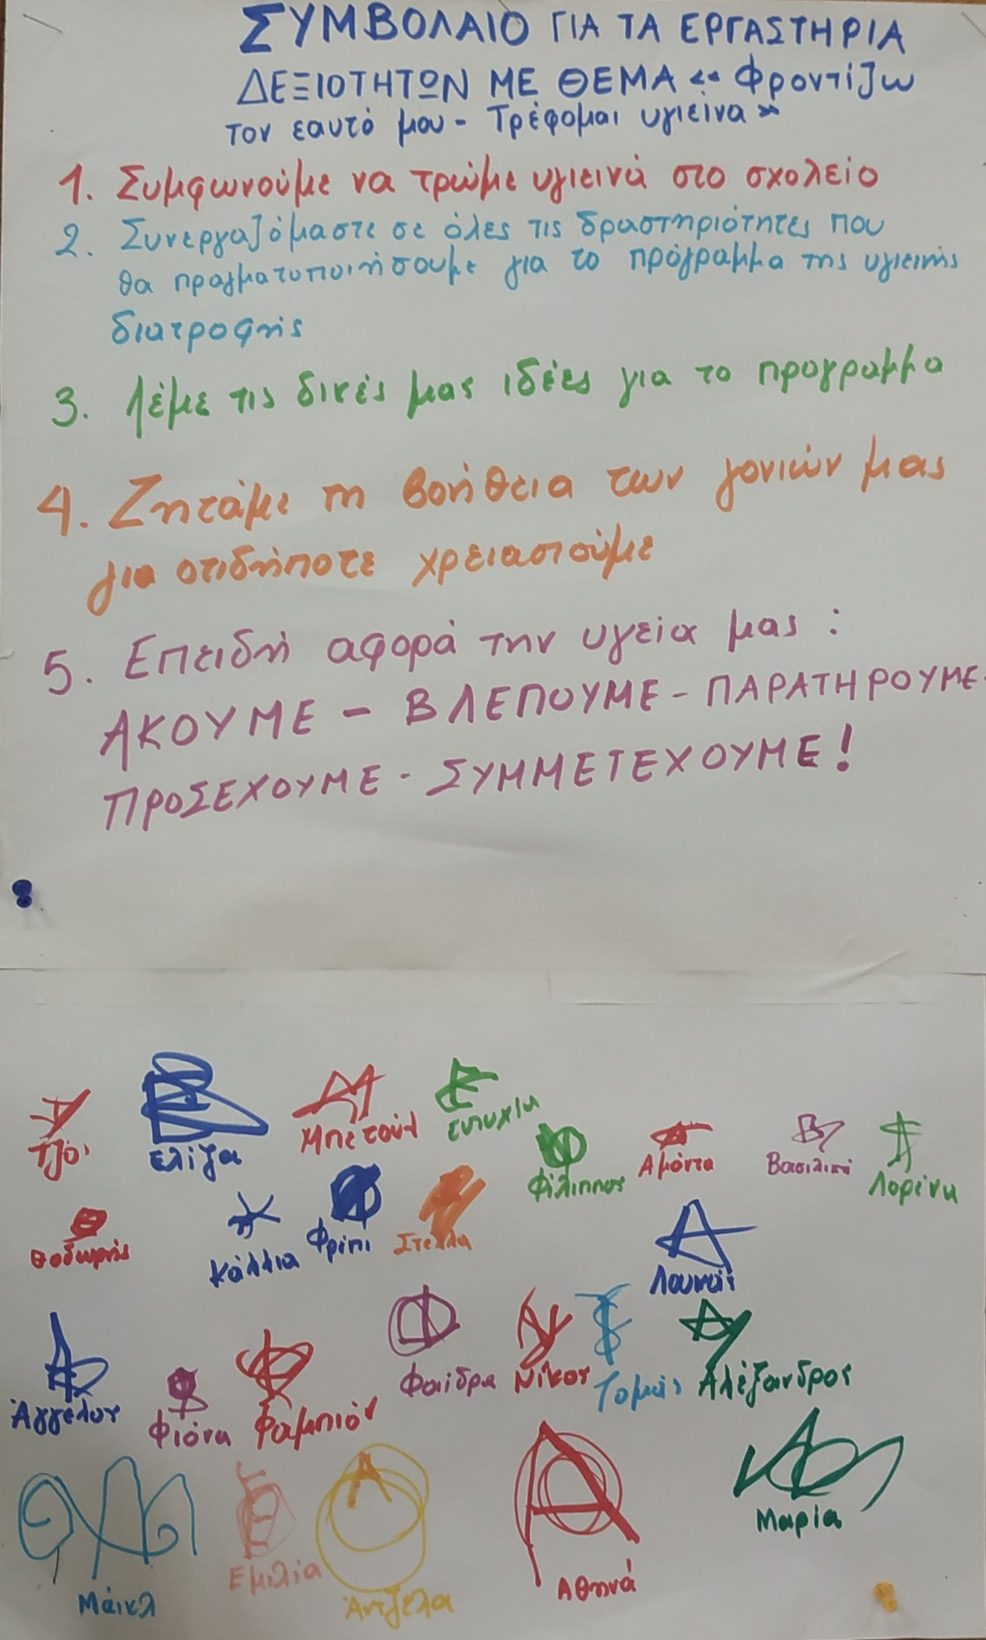 ΣΥΜΒΟΛΑΙΟ ΓΙΑ ΤΑ ΕΡΓΑΣΤΗΡΙΑ
ΔΕΞΙΟΤΗΤΩΝ ΜΕ ΘΕΜΑ «Φροντίζω
τον εαυτό μου - Τρέφομαι υγιεινα»
1. Συμφωνούμε να τρώμε υγιεινά στο σχολείο
2. Συνεργαζόμαστε σε όλες τις δραστηριότητες που
θα πραγματοποιήσουμε για το πρόγραμμα της υγιεινής
διατροφής
3. Λέμε τις δικές μας ιδέες για το προγραμμα
4. Ζητάμε τη βοήθεια των γονιών μας
για οτιδήποτε χρειαστούμε
5. Επειδή αφορά την υγεία μας :
ΑΚΟΥΜΕ - ΒΛΕΠΟΥΜΕ - ΠΑΡΑΤΗΡΟΥΜΕ -
ΠΡΟΣΕΧΟΥΜΕ - ΣΥΜΜΕΤΕΧΟΥΜΕ!
Τζόι Ελίζα Μπετούλ Ευτυχία Φίλιππος Αμάντα Βασιλική Λορένα
Θοδωρής Κάλλια Στέλλα
Άγγελος Φιόνα Φαμπιόν Φαίδρα Νίκος Τομάς Αλέξανδρος
Μάικλ Εμιλία Άντζελα Αθηνά Μαρία